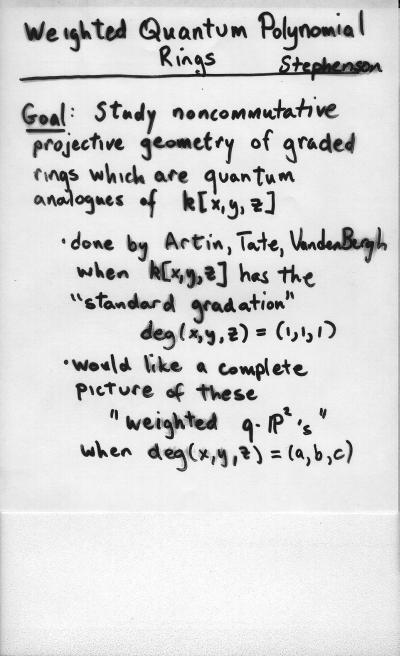 Weighted Quantum Polynomial
Rings Stephenson
Goal: Study noncommutative
projective geometry of graded
rings which are quantum
analogues of k[x,y,z]
• done by Artin, Tate, VandenBergh
when k[x,y,z] has the
"standard gradation"
deg(x,y,z) = (1,1,1)
• would like a complete
picture of these
"weighted q-ℙ²'s"
when deg(x,y,z) = (a,b,c)